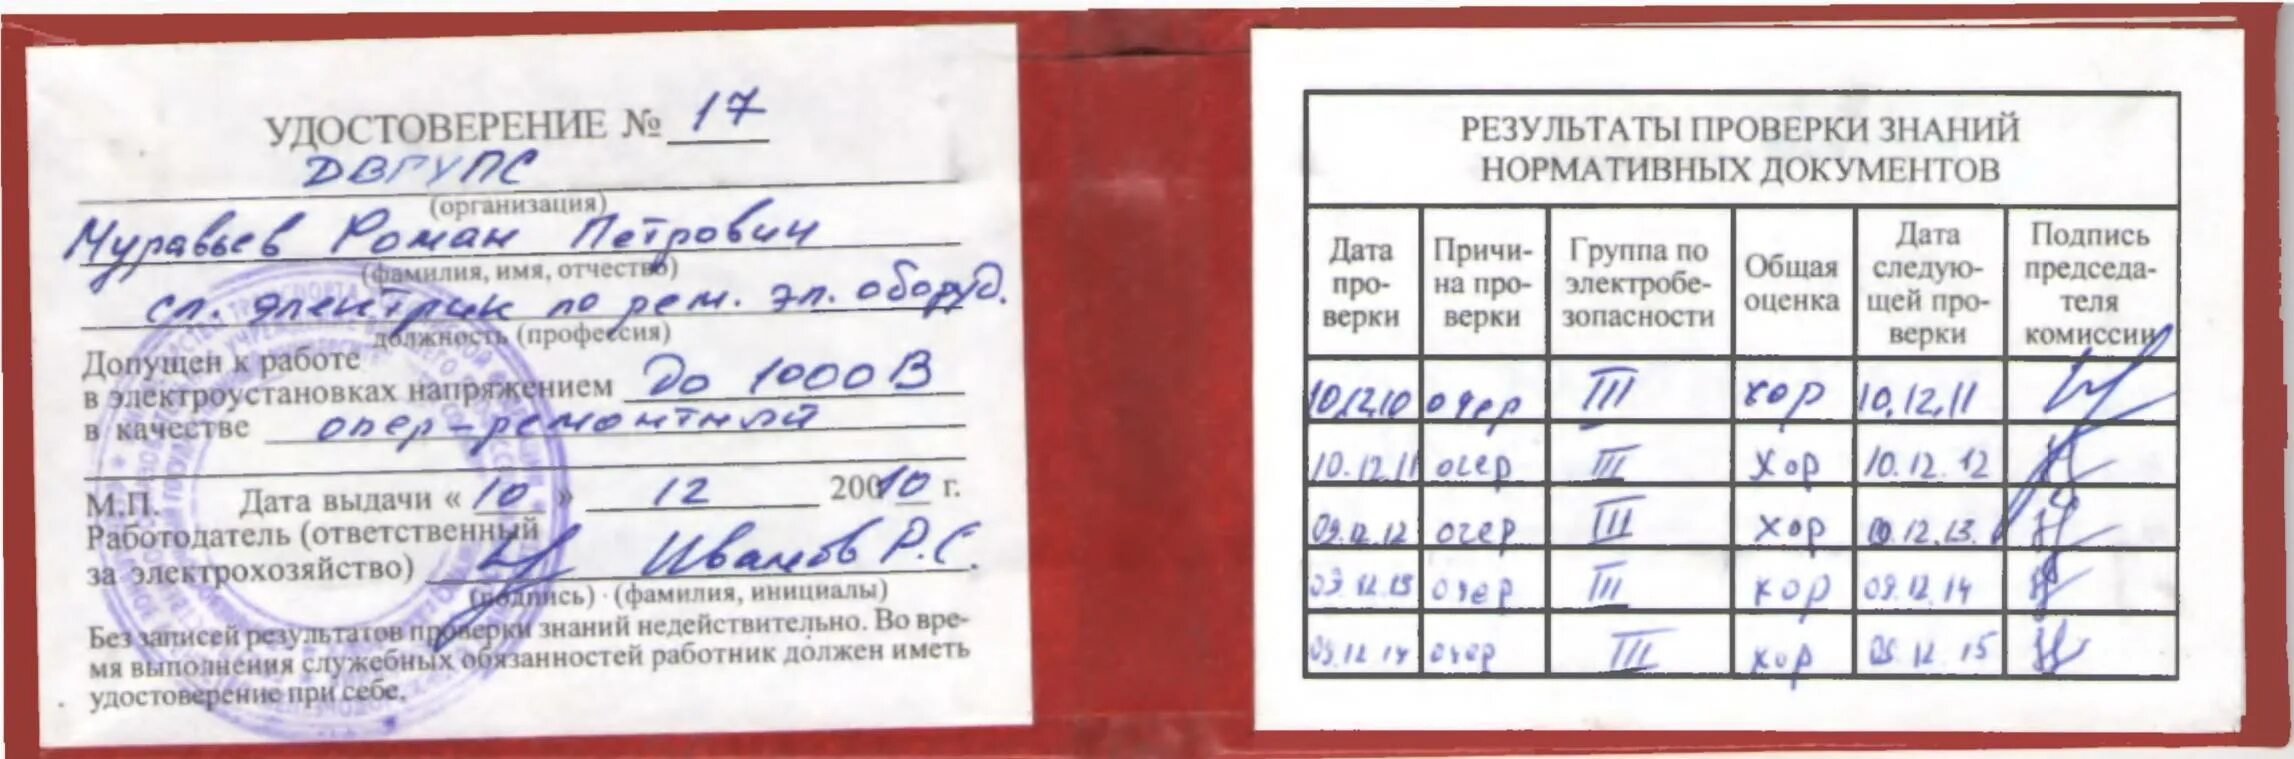 УДОСТОВЕРЕНИЕ № 17
ДВГУПС
(организация)
Муравьев Роман Петрович
(фамилия, имя, отчество)
сл. электрик по рем. эл. оборуд.
должность (профессия)
Допущен к работе
в электроустановках напряжением до 1000 В
в качестве опер-ремонтный
М.П. Дата выдачи « 10 » 12 20010 г.
Работодатель (ответственный
за электрохозяйство) Иванов Р.С.
(подпись) (фамилия, инициалы)
Без записей результатов проверки знаний недействительно. Во вре-
мя выполнения служебных обязанностей работник должен иметь
удостоверение при себе.
РЕЗУЛЬТАТЫ ПРОВЕРКИ ЗНАНИЙ
НОРМАТИВНЫХ ДОКУМЕНТОВ
Дата про- верки Причи- на про- верки Группа по электробе- зопасности Общая оценка Дата следую- щей про- верки Подпись председа- теля комиссии
10.12.10 очер III хор 10.12.11
10.12.11 очер III хор 10.12.12
09.12.12 очер III хор 10.12.13
09.12.13 очер III хор 09.12.14
09.12.14 очер III хор 09.12.15